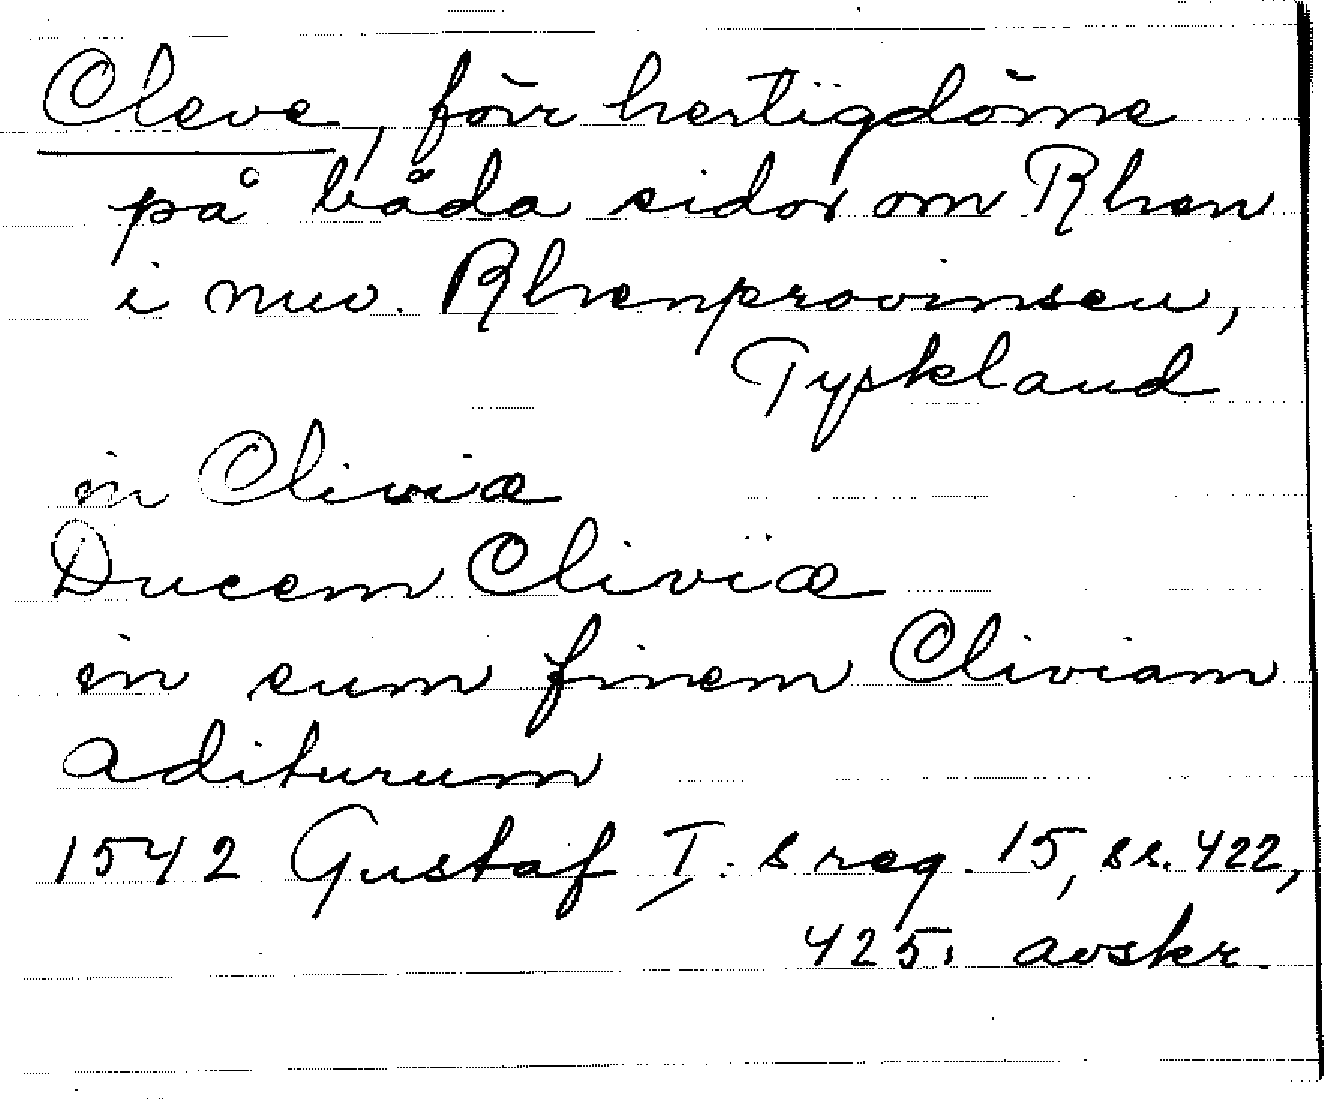 Cleve, förr hertigdöme
på båda sidor om Rhen
i nuv. Rhenprovinsen,
Tyskland
in Cliviæ
Ducem Cliviæ
in eum finem Cliviam
aditurum
1542 Gustaf I:s reg. 15, ss. 422,
425. avskr.